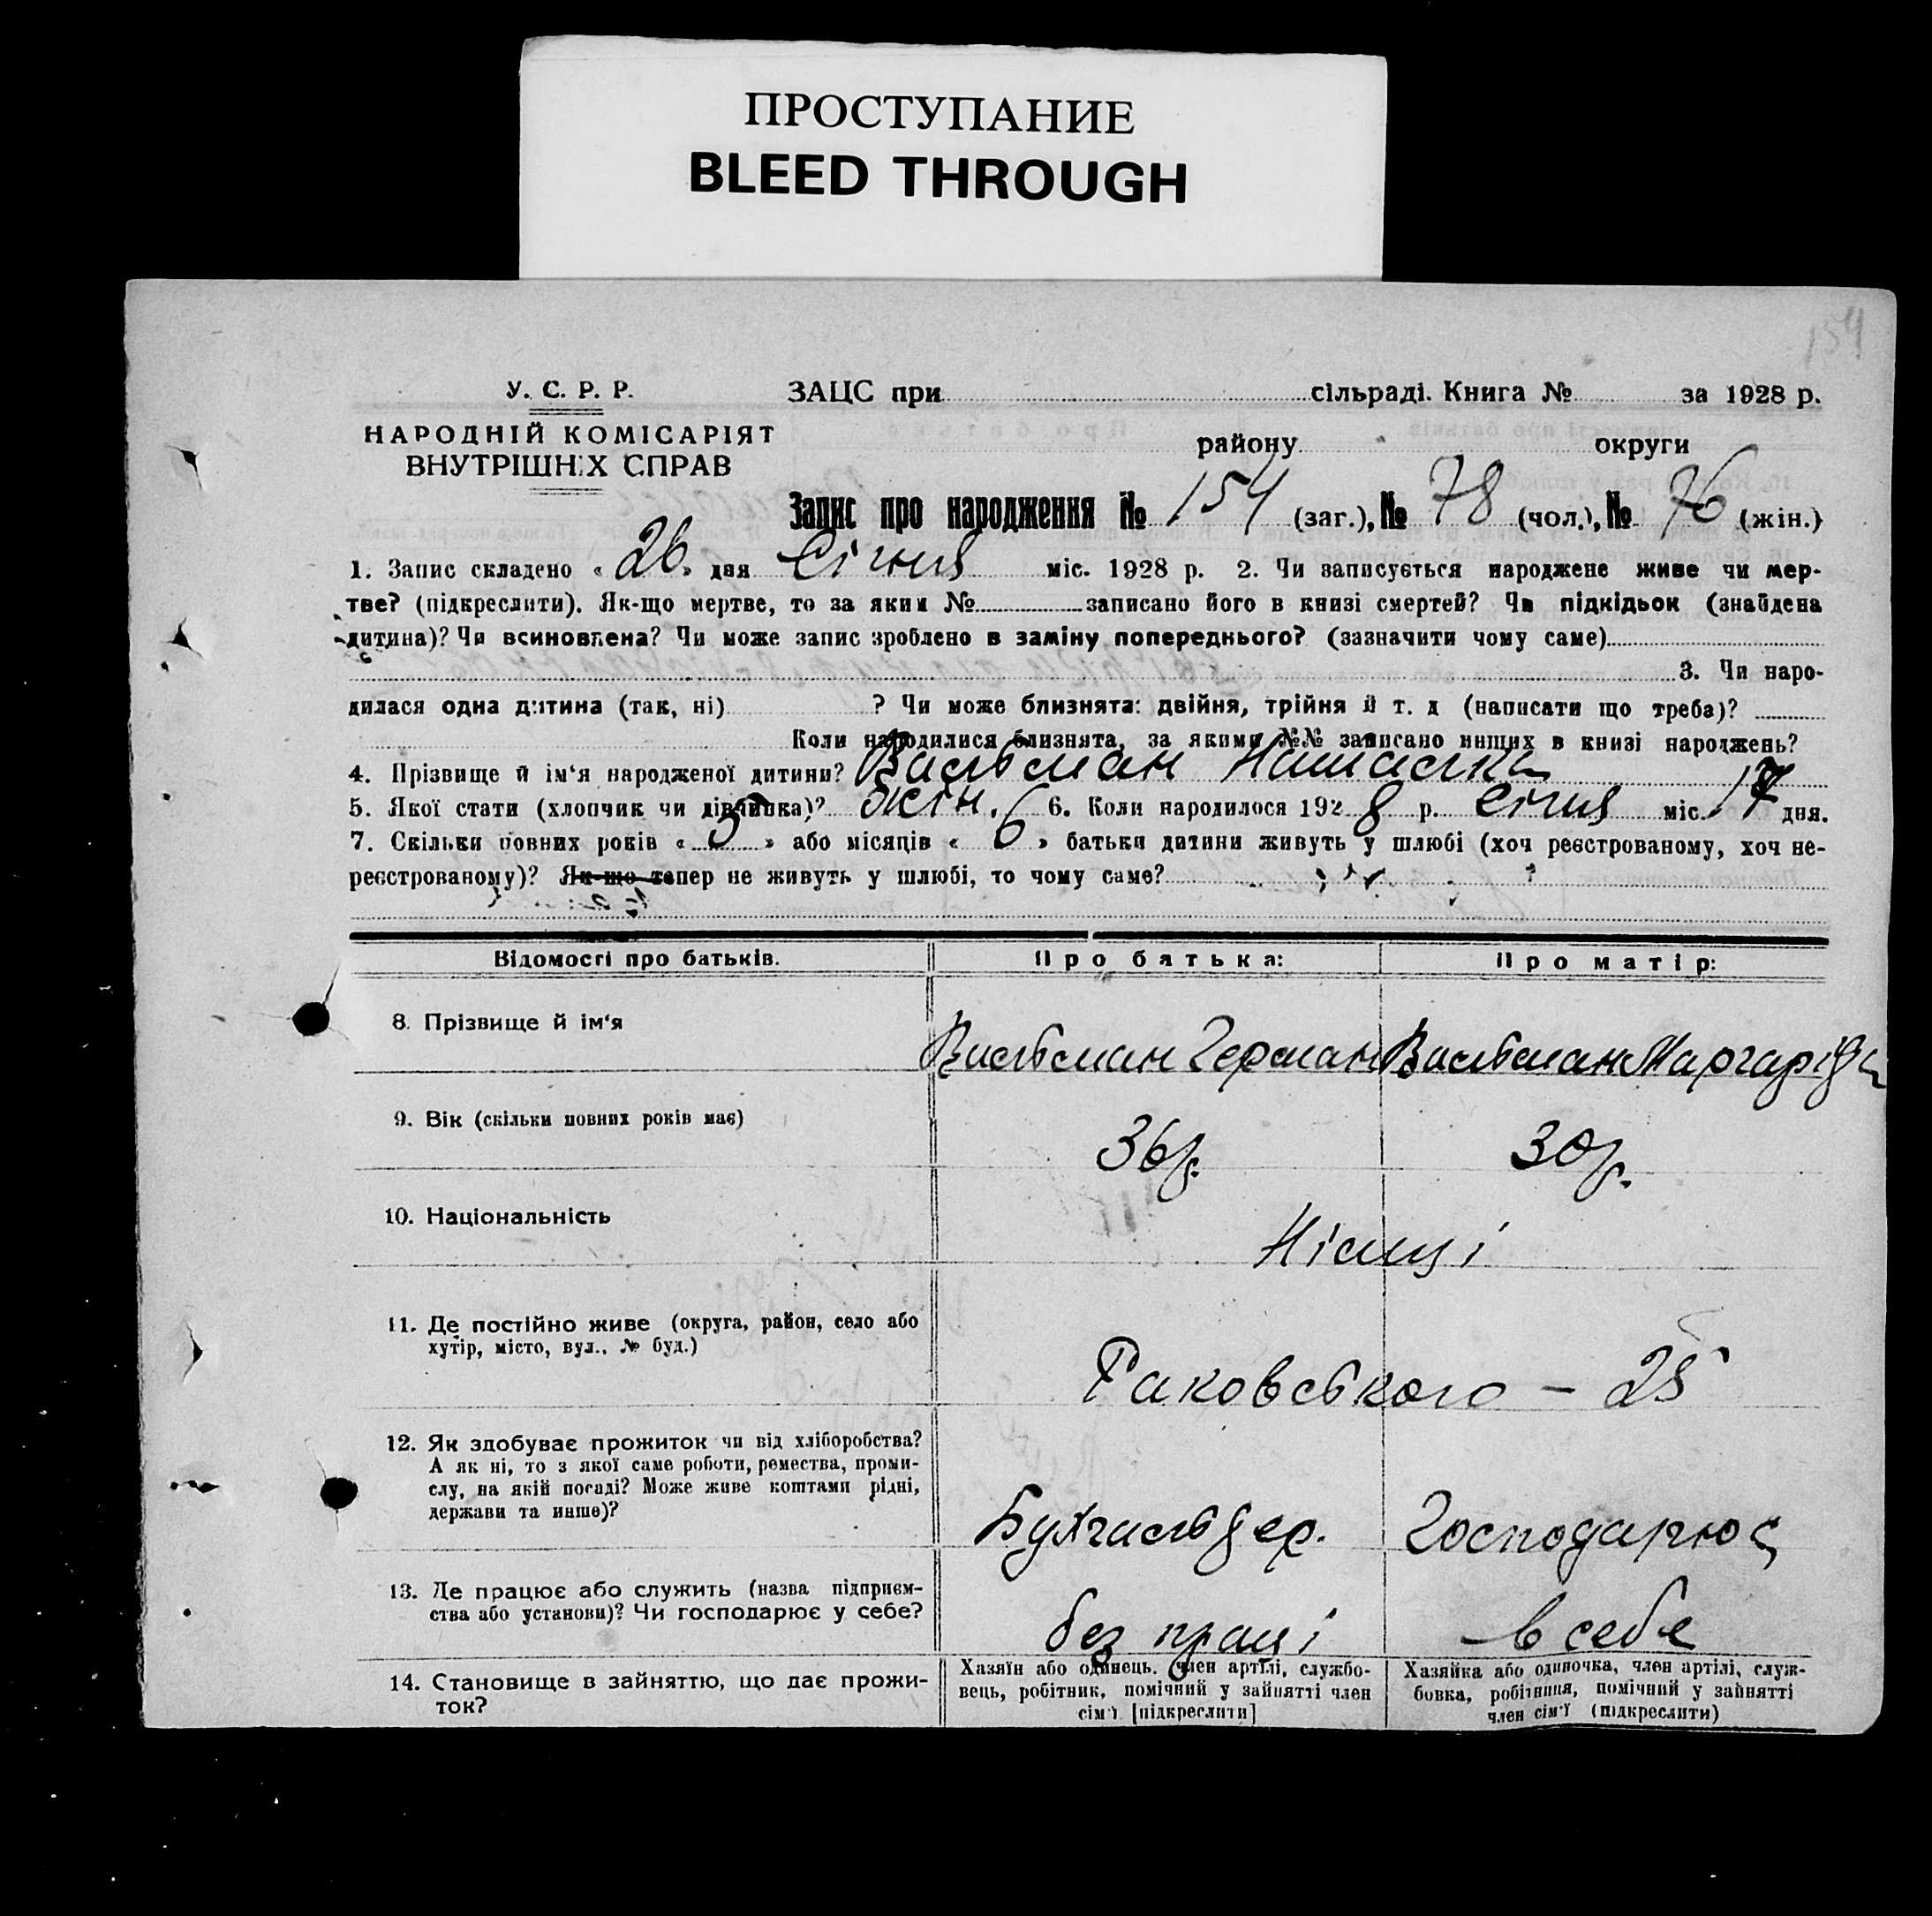 ПРОСТУПАНИЕ
BLEED THROUGH
154
У. С. Р. Р.
НАРОДНІЙ КОМІСАРІЯТ
ВНУТРІШНІХ СПРАВ
ЗАЦС при сільраді. Книга № за 1928 р.
району округи
Запис про народження № 154 (заг.), № 78 (чол.), № 76 (жін.)
1. Запис складено « 26 » дня Січня міс. 1928 р. 2. Чи записується народжене живе чи мер-
тве? (підкреслити). Як-що мертве, то за яким № записано його в книзі смертей? Чи підкідьок (знайдена
дитина)? Чи всиновлена? Чи може запис зроблено в заміну попереднього? (зазначити чому саме)
3. Чи наро-
дилася одна дитина (так, ні) ? Чи може близнята: двійня, трійня й т. д (написати що треба)?
Коли народилися близнята, за якими №№ записано инших в книзі народжень?
4. Прізвище й ім'я народженої дитини? Вильсман Наталка
5. Якої стати (хлопчик чи дівчинка)? жін. 6. Коли народилося 1928 р. січня міс. 17 дня.
7. Скільки повних років « 5 » або місяців « 6 » батьки дитини живуть у шлюбі (хоч реєстрованому, хоч не-
реєстрованому)? Як-що тепер не живуть у шлюбі, то чому саме?
Відомості про батьків. Про батька: Про матір:
8. Прізвище й ім'я Вильсман Герман Вильсман Маргаріда
9. Вік (скільки повних років має) 36 р. 30 р.
10. Національність Німці
11. Де постійно живе (округа, район, село або
хутір, місто, вул., № буд.)
Раковського – 25
12. Як здобуває прожиток чи від хліборобства?
А як ні, то з якої саме роботи, ремества, проми-
слу, на якій посаді? Може живе коштами рідні,
держави та инше)?
Бухгальдер. Господарює
13. Де працює або служить (назва підприєм-
ства або установи)? Чи господарює у себе?
без праці в себе
14. Становище в зайняттю, що дає прожи-
ток?
Хазяїн або одинець. член артілі, службо-
вець, робітник, помічний у зайнятті член
сім'ї [підкреслити]
Хазяйка або одиночка, член артілі, служ-
бовка, робітниця, помічний у зайнятті
член сім'ї (підкреслити)